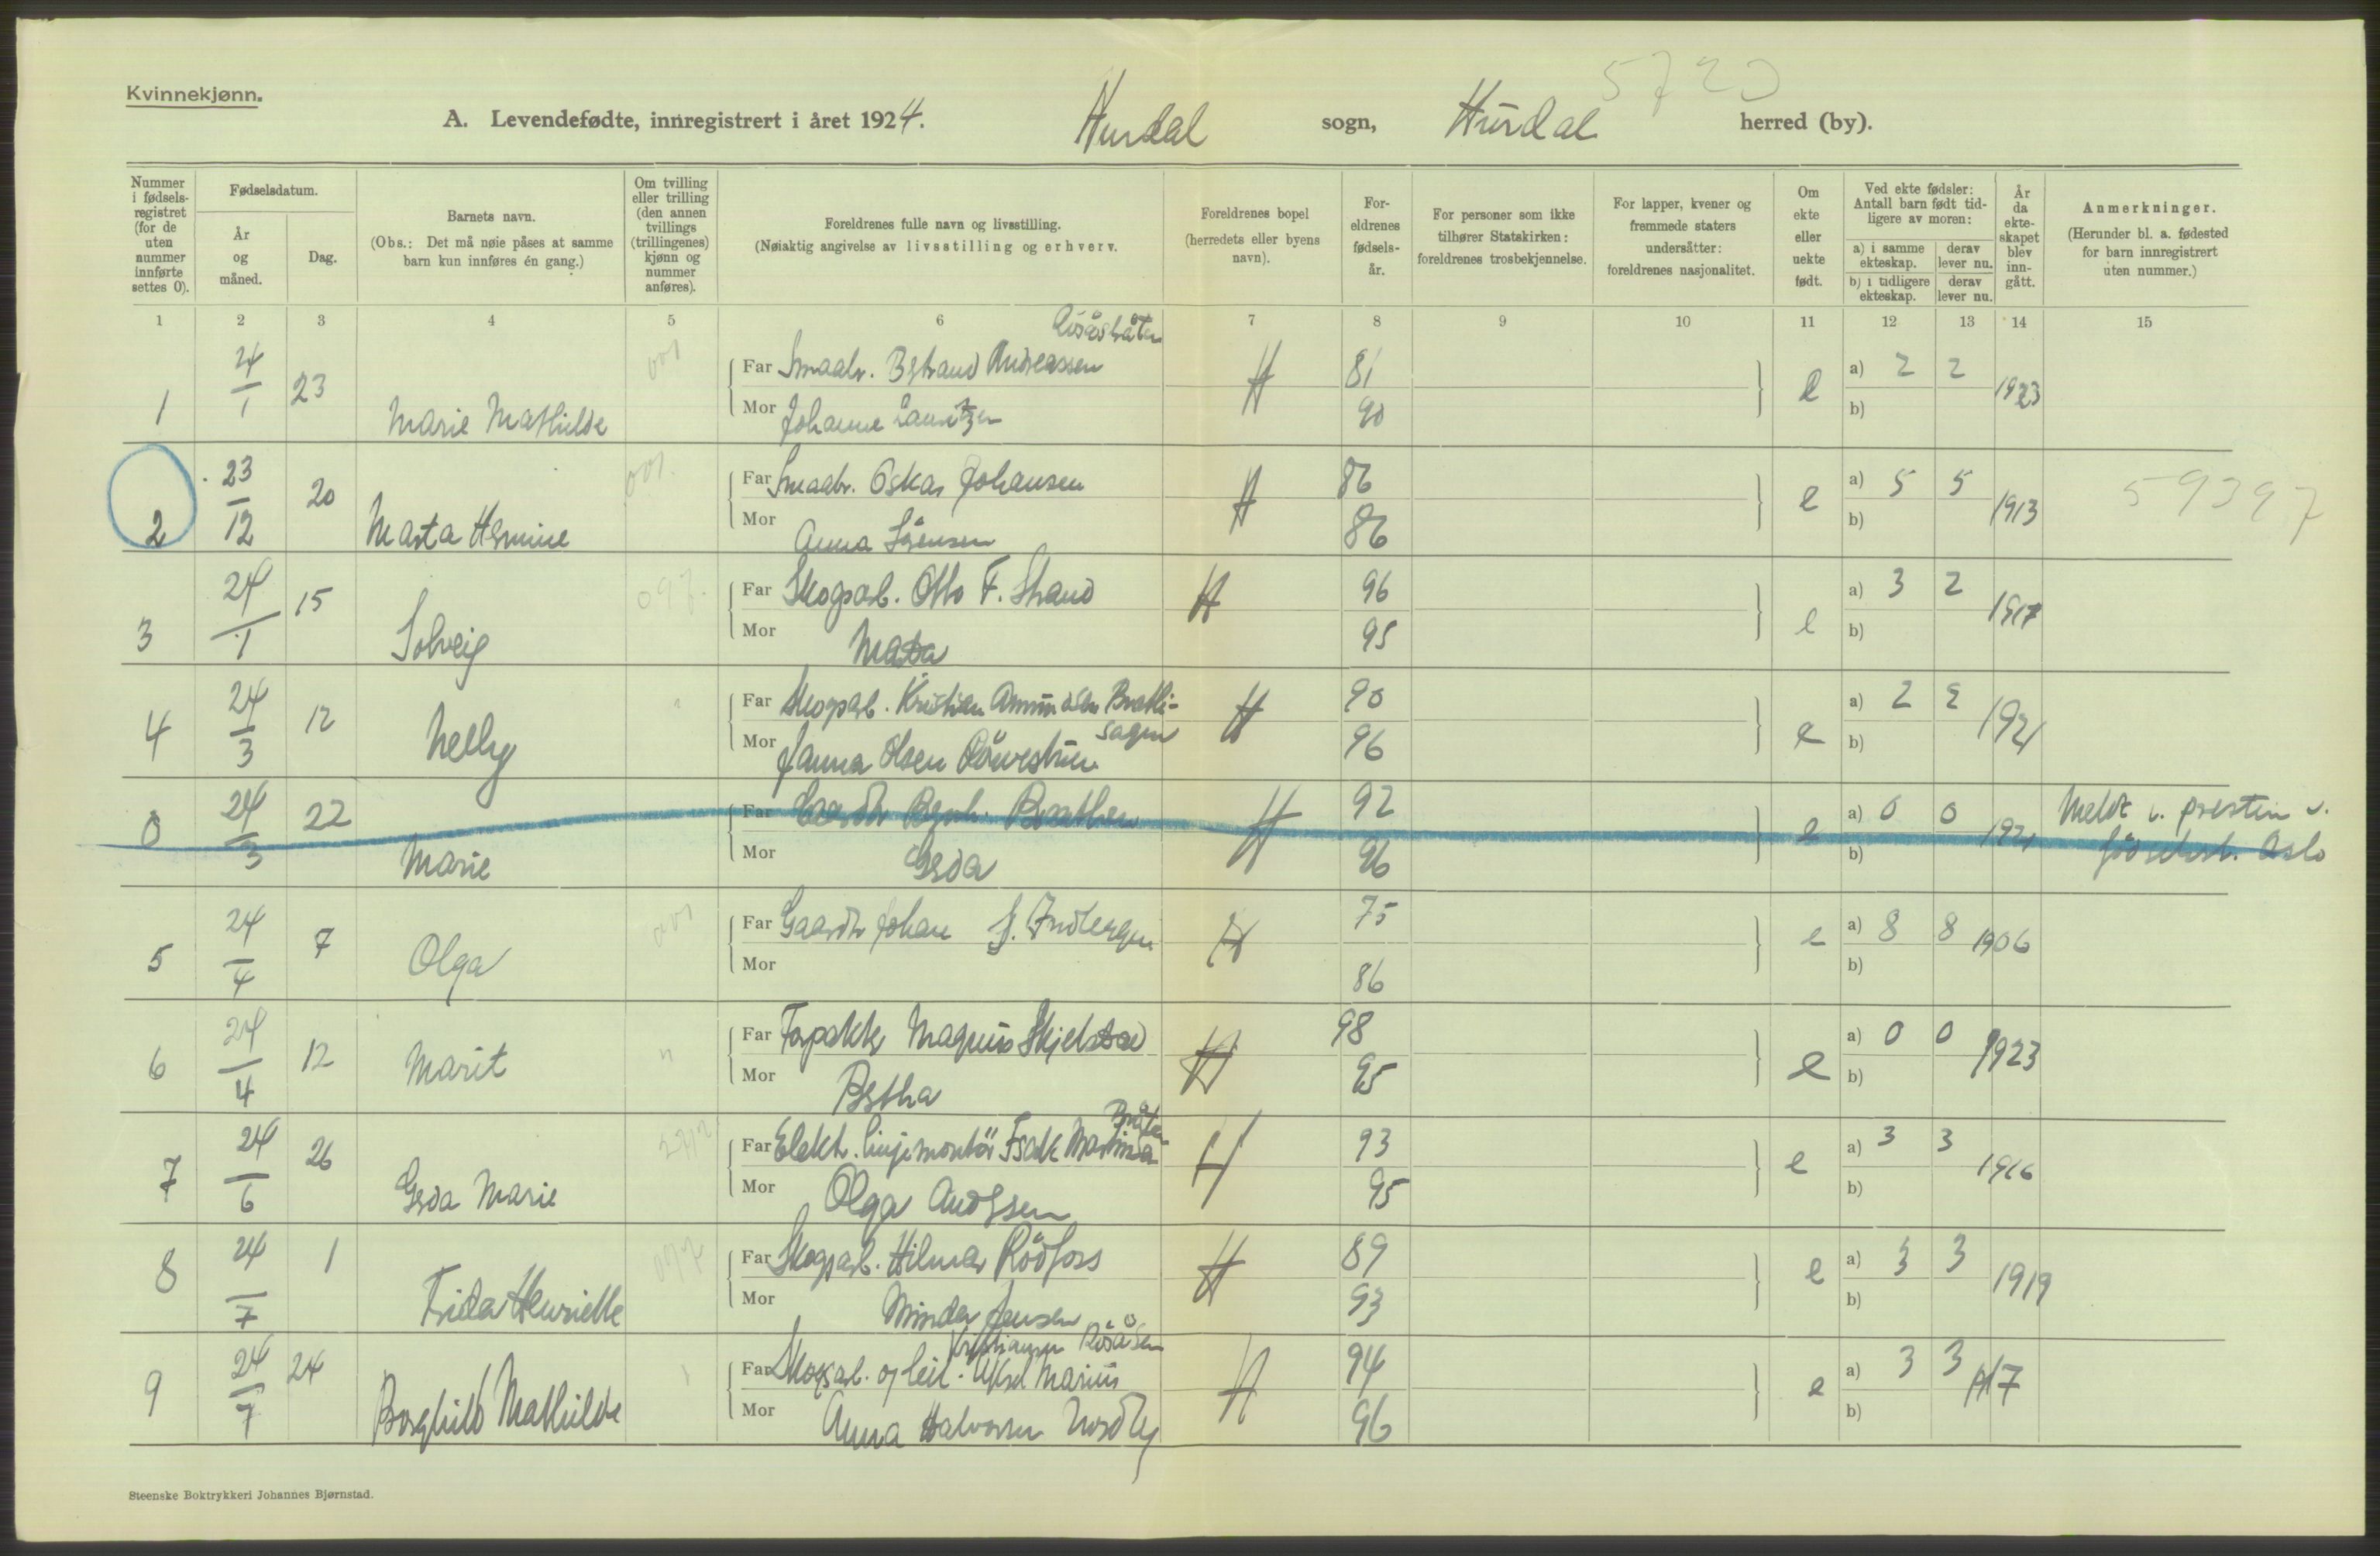 Kvinnekjønn.
5723
A. Levendefødte, innregistrert i året 1924. Hurdal sogn, Hurdal herred (by).
Nummer i fødselsregistret (for de uten nummer innførte settes 0).
Fødselsdatum.
År og måned.
Dag.
Barnets navn.
(Obs.: Det må nøie påses at samme barn kun innføres én gang.)
Om tvilling eller trilling (den annen tvillings (trillingenes) kjønn og nummer anføres).
Foreldrenes fulle navn og livsstilling.
(Nøiaktig angivelse av livsstilling og erhverv.
Foreldrenes bopel (herredets eller byens navn).
Foreldrenes fødselsår.
For personer som ikke tilhører Statskirken: foreldrenes trosbekjennelse.
For lapper, kvener og fremmede staters undersåtter: foreldrenes nasjonalitet.
Om ekte eller uekte født.
Ved ekte fødsler: Antall barn født tidligere av moren:
a) i samme ekteskap. derav lever nu.
b) i tidligere ekteskap. derav lever nu.
År da ekteskapet blev inngått.
Anmerkninger.
(Herunder bl. a. fødested for barn innregistrert uten nummer.)
1 2 3 4 5 6 7 8 9 10 11 12 13 14 15
1 24/1 23 Marie Mathilde Far Smaabr. Andreassen H 81 e a) 2 2 1923
Mor Johanne 90 b)
2 23/12 20 Marta Hermine Far Smaabr. Oskar Johansen H 86 e a) 5 5 1913 59397
Mor Anna Sörensen 86 b)
3 24/1 15 Solveig Far Skogsarb. Otto F. Strand H 96 e a) 3 2 1917
Mor Marta 95 b)
4 24/3 12 Nelly Far Skogsarb. Kristian Amundsen Brathagen H 90 e a) 2 2 1921
Mor Janna Olsen 96 b)
0 24/3 22 Marie Far Gaardbr. Bernh. Braathen H 92 e a) 0 0 1921 Meldt v. presten v. födselsst. Oslo
Mor Gerda 96 b)
5 24/4 7 Olga Far Gaardbr Johan J. H 75 e a) 8 8 1906
Mor 86 b)
6 24/4 12 Marit Far Forpakter Magnus Skjelstad H 98 e a) 0 0 1923
Mor Bertha 95 b)
7 24/6 26 Gerda Marie Far Elektr. linjemontör Isak Martin Bråten H 93 e a) 3 3 1916
Mor Olga Andersen 95 b)
8 24/7 1 Frida Henriette Far Skogsarb. Hilmar Rödfors H 89 e a) 3 3 1919
Mor Minda Jensen 93 b)
9 24/7 24 Borghild Mathilde Far Skogsarb. og leil. Aksel Marius Kristiansen Rösåsen H 94 e a) 3 3 1917
Mor Anna Halvorsen Nordby 96 b)
Steenske Boktrykkeri Johannes Bjørnstad.